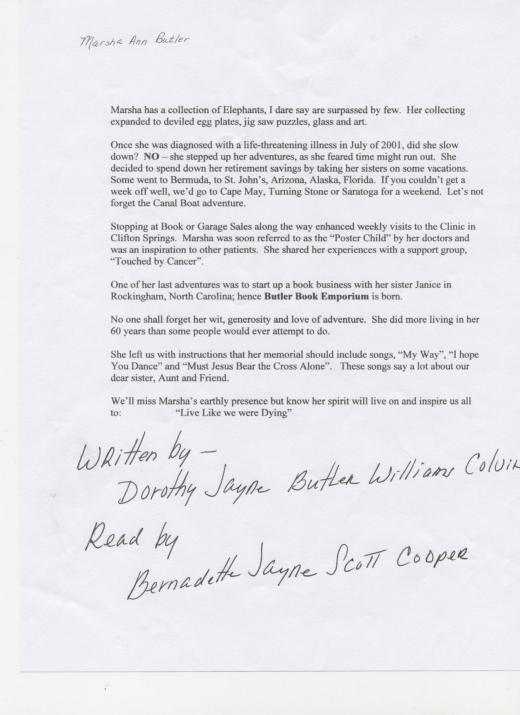 Marsha Ann Butler
Marsha has a collection of Elephants, I dare say are surpassed by few.  Her collecting
expanded to deviled egg plates, jig saw puzzles, glass and art.
Once she was diagnosed with a life-threatening illness in July of 2001, did she slow
down?  NO – she stepped up her adventures, as she feared time might run out.  She
decided to spend down her retirement savings by taking her sisters on some vacations.
Some went to Bermuda, to St. John's, Arizona, Alaska, Florida.  If you couldn't get a
week off well, we'd go to Cape May, Turning Stone or Saratoga for a weekend.  Let's not
forget the Canal Boat adventure.
Stopping at Book or Garage Sales along the way enhanced weekly visits to the Clinic in
Clifton Springs.  Marsha was soon referred to as the "Poster Child" by her doctors and
was an inspiration to other patients.  She shared her experiences with a support group,
"Touched by Cancer".
One of her last adventures was to start up a book business with her sister Janice in
Rockingham, North Carolina; hence Butler Book Emporium is born.
No one shall forget her wit, generosity and love of adventure.  She did more living in her
60 years than some people would ever attempt to do.
She left us with instructions that her memorial should include songs, "My Way", "I hope
You Dance" and "Must Jesus Bear the Cross Alone".   These songs say a lot about our
dear sister, Aunt and Friend.
We'll miss Marsha's earthly presence but know her spirit will live on and inspire us all
to:               "Live Like we were Dying"
Written by –
Dorothy Jayne Butler Williams Colvin
Read by
Bernadette Jayne Scott Cooper